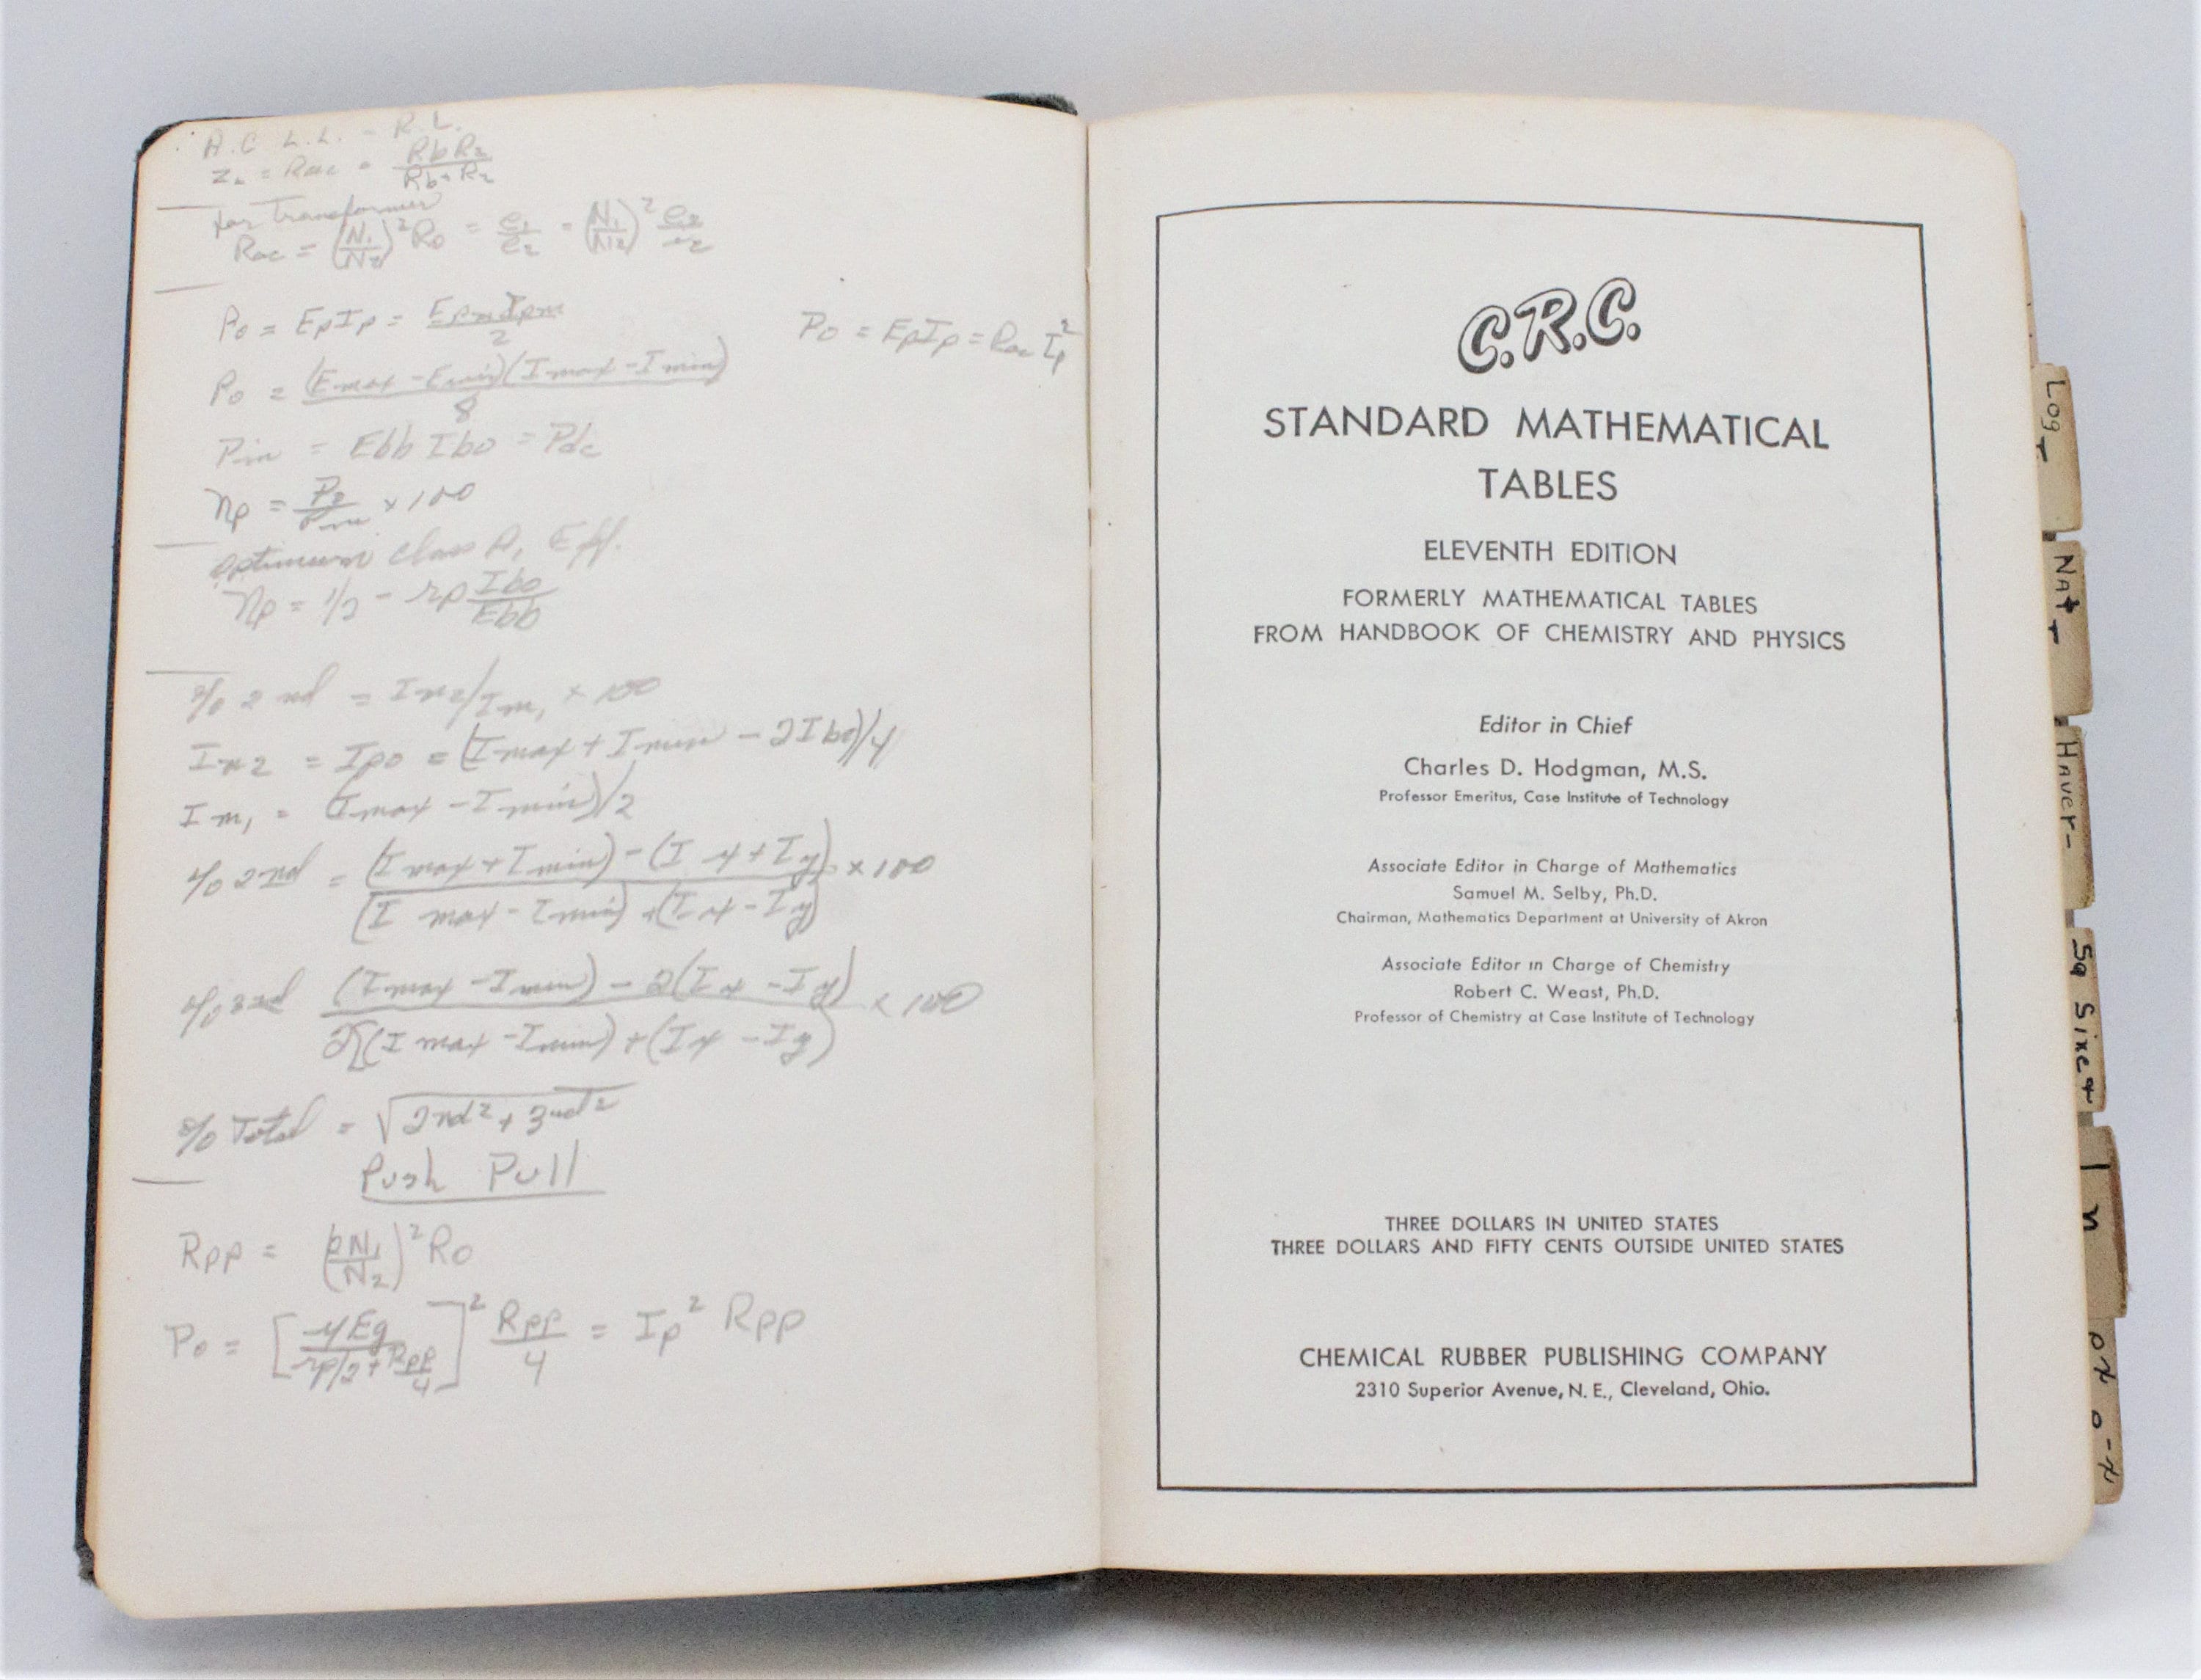 A.C L.L. = R L.
Z_L = Rac = RbR2 / Rb+R2
for Transformer
Rac = (N1/N2)²Ro = e1/e2 = (N1/N2)² e2
Po = EpIp = EpmIpm / 2
Po = EpIp = Rac Ip²
Po = (Emax - Emin)(Imax - Imin) / 8
Pin = Ebb Ibo = Pdc
np = / Pin × 100
optimum class A, Eff.
np = 1/2 - rp Ibo/Ebb
% 2nd = Im2/Im1 × 100
Im2 = Ipo = (Imax + Imin - 2Ibo)/4
Im1 = (Imax - Imin)/2
% 2nd = (Imax + Imin) - (Ix + Iy) / (Imax - Imin) + (Ix - Iy) × 100
% 3rd (Imax - Imin) - 2(Ix - Iy) / 2[(Imax - Imin) + (Ix - Iy) × 100
% Total = √2nd² + 3rd²
Push Pull
Rpp = (2N1/N2)² Ro
Po = [μEg / rp/2 + Rpp/4]² Rpp/4 = Ip² Rpp
C.R.C.
STANDARD MATHEMATICAL
TABLES
ELEVENTH EDITION
FORMERLY MATHEMATICAL TABLES
FROM HANDBOOK OF CHEMISTRY AND PHYSICS
Editor in Chief
Charles D. Hodgman, M.S.
Professor Emeritus, Case Institute of Technology
Associate Editor in Charge of Mathematics
Samuel M. Selby, Ph.D.
Chairman, Mathematics Department at University of Akron
Associate Editor in Charge of Chemistry
Robert C. Weast, Ph.D.
Professor of Chemistry at Case Institute of Technology
THREE DOLLARS IN UNITED STATES
THREE DOLLARS AND FIFTY CENTS OUTSIDE UNITED STATES
CHEMICAL RUBBER PUBLISHING COMPANY
2310 Superior Avenue, N. E., Cleveland, Ohio.
Log
Nat
Haver-
Sq